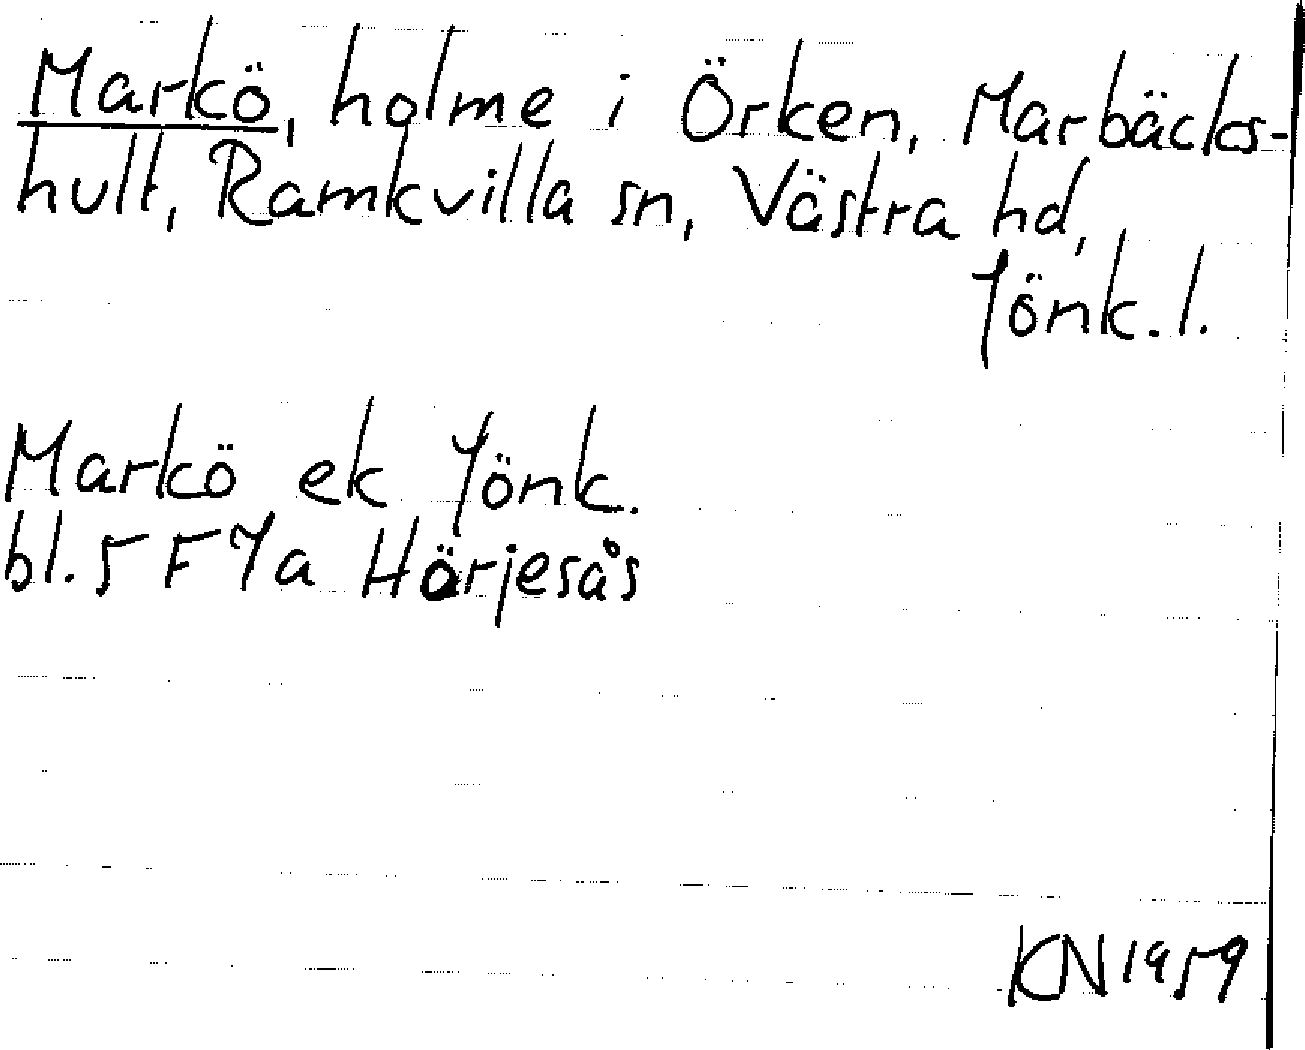 Markö, holme i Örken, Marbäcks-
hult, Ramkvilla sn, Västra hd,
Jönk. l.
Markö ek Jönk.
bl. 5 F 7a Hörjesås
KN 1959